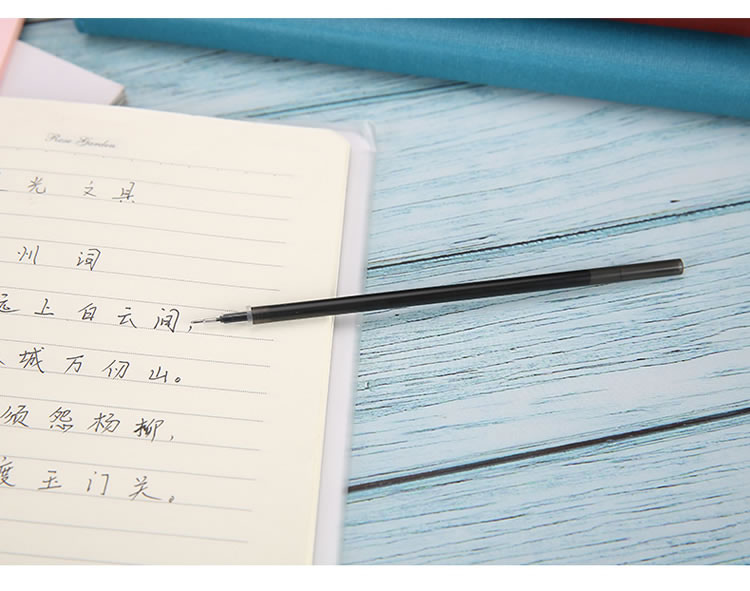 Rose Garden
光文具
州词
远上白云间,
城万仞山。
须怨杨柳,
度玉门关。